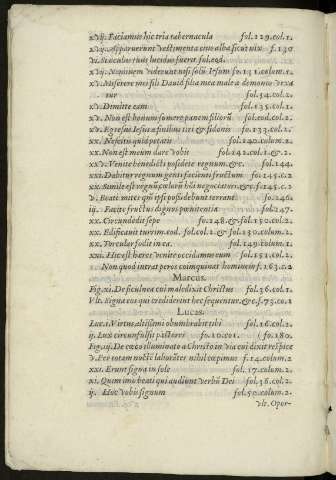 xvij. Faciamus hic tria tabernacula fol. 129. col. 1.
xvij. Apparuerunt vestimenta eius alba sicut nix f. 130
vi. Si oculus tuus lucidus fuerit fol. eod.
xvij. Neminem viderunt nisi solũ Iesum fo. 131. colum. 1.
xv. Miserere mei fili David filia mea male a demonio vexa
tur fol. 54. col. 2.
xv. Dimitte eam fol. 135. col. 1.
xv. Non est bonum sumere panem filiorũ fol. eod. col. 2.
xv. Egressus Iesus a finibus tiri & sidonis fo. 133. col. 2.
xx. Nescitis quid petatis fol. 140. colum. 2.
xx. Non est meum dare vobis fol. 142. col. 1. & 2.
xxv. Venite benedicti possidete regnum. &c. fol. 144.
xxi. Dabitur regnum genti facienti fructum fol. 145. c. 2.
xx. Simile est regnũ cœlorũ hõi negociatori. &c. f. 145. c. 2
v. Beate mites qui ipsi possidebunt terram fo. 146.
iij. Facite fructus dignos penitentia fol. 147.
xx. Circumdedit sepe fo. 148. & fol. 150. col. 2.
xx. Edificavit turrim. eod. fol. col. 2. & fol. 150. colum. 2.
xx. Torcular fodit in ea. fol. 149. colum. 1.
xxi. Hic est heres venite occidamus eum fol. 151. col. 2.
Non quod intrat per os coinquinat hominem f. 163. c. 2
Marcus.
Fig. xi. De ficulnea cui maledixit Christus fol. 36. col. 1.
Vlt. Signa eos qui crediderint hec sequentur. &c. f. 75. co. 1
Lucas.
Luc. 1. Virtus altissimi obumbrabit tibi fol. 16. col. 2.
ij. Lux circunfulsit pastores fo. 10. co. 1. fo. 180.
Fig. iij. De ceco illuminato a Christo in via cui dixit respice
v. Per totam noctẽ laborãtes nihil cœpimus f. 14. colum. 2
xxi. Erunt signa in sole fol. 17. colum. 2.
xi. Quin imo beati qui audiunt verbũ Dei fol. 38. col. 2.
ij. Hoc vobis signum fol. 50. colum. 2.
vlt. Opor-